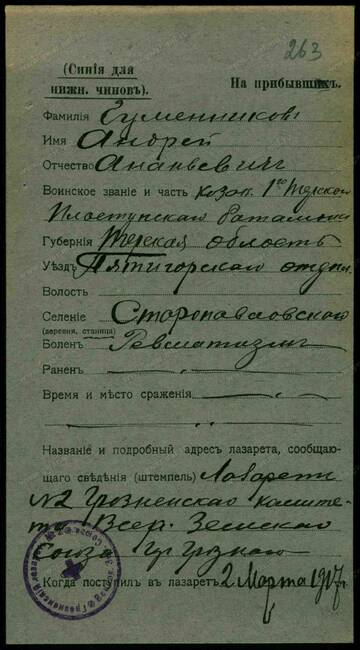 263
(Синія для
нижн. чиновъ).
На прибывшихъ.
Фамилія Гуменниковъ
Имя Андрей
Отчество Ананьевичъ
Воинское званіе и часть козак. 1го Терскаго
Пластунскаго баталіона
Губернія Терская область
Уѣздъ Пятигорскаго отдѣл.
Волость
Селеніе Старопавловской
(деревня, станица)
Боленъ Ревматизмъ
Раненъ — „ —
Время и мѣсто сраженія —
— „ — „ —
Названіе и подробный адресъ лазарета, сообщаю-
щаго свѣдѣнія (штемпель) Лазаретъ
№2 Грозненскаго комите-
та Всер. Земскаго
Союза гр. Грознаго
Когда поступилъ въ лазаретъ 2 Марта 1917 г.